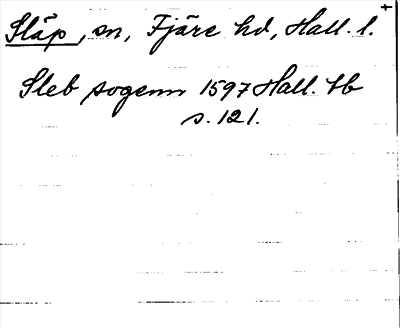 Släp, sn, Fjäre hd, Hall. l.
Sleb sogenn 1597 Hall. tb
s. 121.